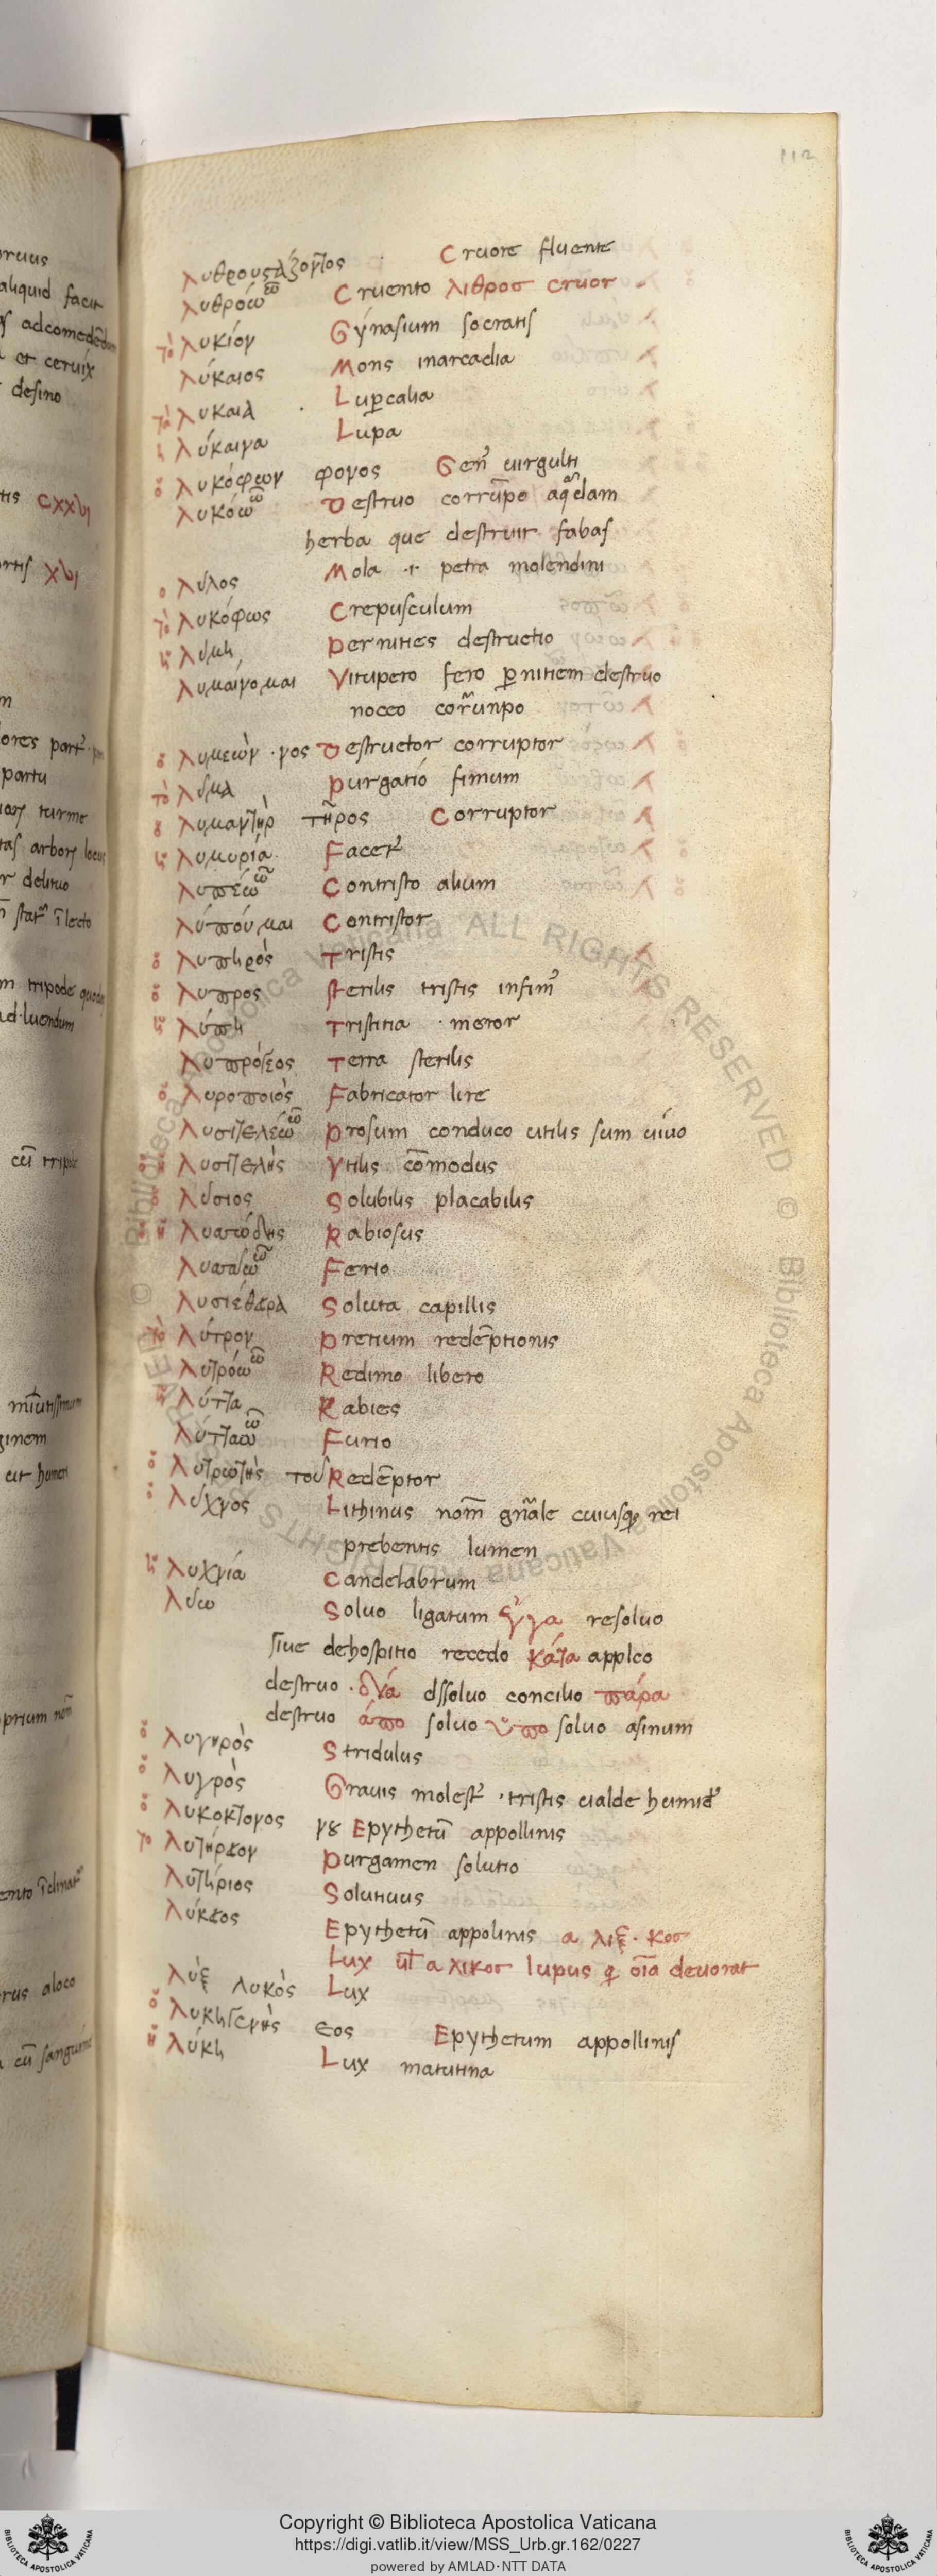 112
λυθρουστάζοντος Cruore fluente
λυθρόω ῶ Cruento λιθροσ cruor
τὸ λυκίον Gýnasium socratis
λύκαιος Mons inarcadia
τὰ λυκαια Luꝑcalia
ἡ λύκαινα Lupa
ὁ λυκόφων φονος Gen᾽ uirgulti
λυκόω ῶ Destruo corrūpo aq̄dam
herba que destruit fabas
ὁ λύλος Mola ·i· petra molendini
τὸ λυκόφως Crepusculum
ἡ λύμη Pernities destructio
λυμαίνομαι Vitupero fero ꝑnitiem destruo
noceo corrunpo
ὁ λυμεὼν ·νος Destructor corruptor
τὸ λύμα Purgatió fimum
ὁ λυμαντὴρ τῆρος Corruptor
ἡ λυμυρία Facet᾽
λυπέω ῶ Contristo alium
λύπούμαι Contristor
ὁ λυπηρὸς Tristis
ὁ λυπρος sterilis tristis infim᾽
ἡ λύπη Tristitia · meror
λυπρόγεος Terra sterilis
ὁ λυροποιὸς Fabricator lire
λυσιτελέω ῶ Prosum conduco utilis sum uiuo
λυσιτελὴς Vtilis cōmodus
ὁ λύσιος Solubilis placabilis
λυσσώδης Rabiosus
λυσσάω ῶ Ferio
λυσιέθειρα Soluta capillis
τὸ λύτρον Pretium redēptionis
λυτρόω ῶ Redimo libero
ἡ λύττα Rabies
λύτταω ῶ Furio
ὁ λυτρωτὴς τοῦ Redēptor
ὁ λύχνος Lithinus nom̄ gn̄ale cuiusqꝫ rei
prebentis lumen
ἡ λυχνία Candelabrum
λύω Soluo ligatum resoluo
siue dehospitio recedo κάτα appleo
destruo · διά dssoluo concilio πάρα
destruo άπο soluo ὑπο soluo asinum
ὁ λυγυρὸς Stridulus
ὁ λυγρὸς Grauis molest᾽ · tristis ualde humid᾽
ὁ λυκοκτονος νου Epythetū appollinis
το λυτήριον Purgamen solutio
λυτήριος Solutiuus
λύκειος Epythetū appolinis a λιξ · κοσ
Lux ut̄ a λικοσ lupus q oīa deuorat
λὺξ λυκὸς Lux
ὁ λυκηγενὴς εος Epythetum appollinis
ἡ λύκη Lux matutina
Copyright © Biblioteca Apostolica Vaticana
https://digi.vatlib.it/view/MSS_Urb.gr.162/0227
powered by AMLAD·NTT DATA